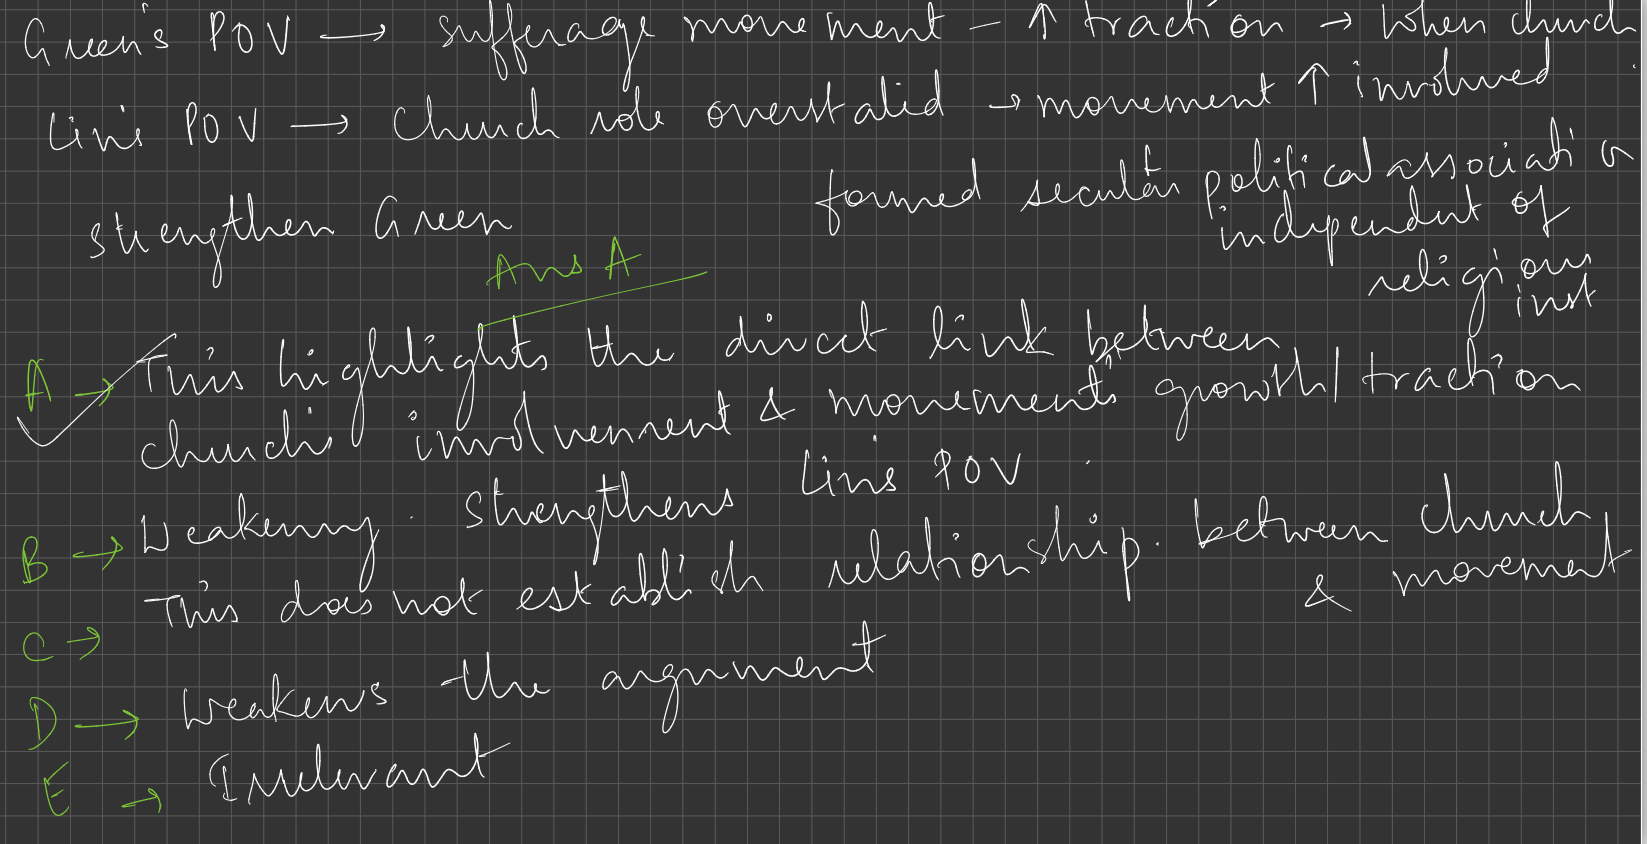 Green's POV → sufferage movement – ↑ traction → when church
involved
Lin's POV → Church role overstatid → movement ↑
formed secular political association
independent of
religious
inst
strengthen Green
Ans A
A → This highlights the direct link between
church's involvement & movement's growth/traction
B → Weakening. Strengthens Lin's POV.
C → This does not establish relationship. between church
& movement
D → Weakens the argument
E → Irrelevant